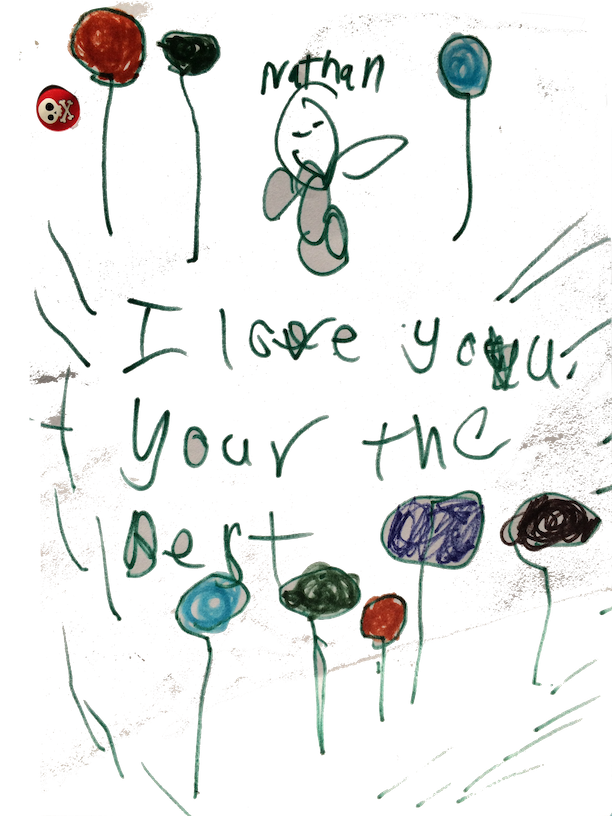 Nathan
I love you.
Your the
Best